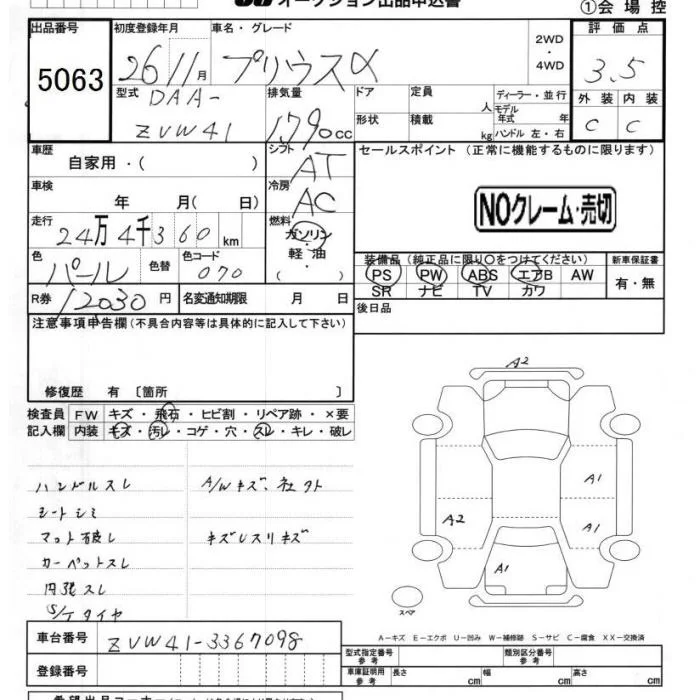 オークション出品申込書
①会場控
出品番号 初度登録年月 車名・グレード 評価点
5063 26 11月 プリウスα 2WD・4WD 3.5
型式 排気量 ドア 定員 人 ディーラー・並行 外装 内装
DAA-
ZVW41 1,790cc 形状 積載 kg モデル年式 年 ハンドル 左・右 C C
車歴 シフト セールスポイント (正常に機能するものに限ります)
自家用・( ) AT
車検 冷房
年 月( 日) AC NOクレーム・売切
走行 燃料
24万4千360km ガソリン・軽油( )
色 色替 色コード 装備品(純正品に限り○をつけてください) 新車保証書
パール 070 PS PW ABS エアB AW 有・無
SR ナビ TV カワ
R券 12030円 名変通知期限 月 日 後日品
注意事項申告欄(不具合内容等は具体的に記入して下さい)
修復歴 有 〔箇所 〕
検査員 FW キズ・飛石・ヒビ割・リペア跡・×要
記入欄 内装 キズ・汚レ・コゲ・穴・スレ・キレ・破レ
ハンドルスレ A/Wキズ、
シートシミ
マット破レ キズレスリキズ
カーペットスレ
内張スレ
S/Tタイヤ
A2
A1
A2
A1
A1
スペア
A-キズ E-エクボ U-凹み W-補修跡 S-サビ C-腐食 XX-交換済
車台番号 ZVW41-3367098
型式指定番号 参考 類別区分番号 参考
登録番号 車庫証明用 参考 長さ cm 幅 cm 高さ cm
希望出品コーナー